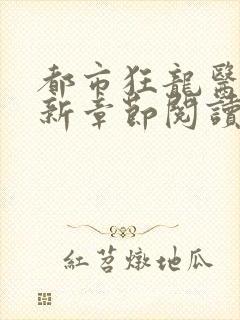 都市狂龍醫
新章節閱讀
紅苕燉地瓜